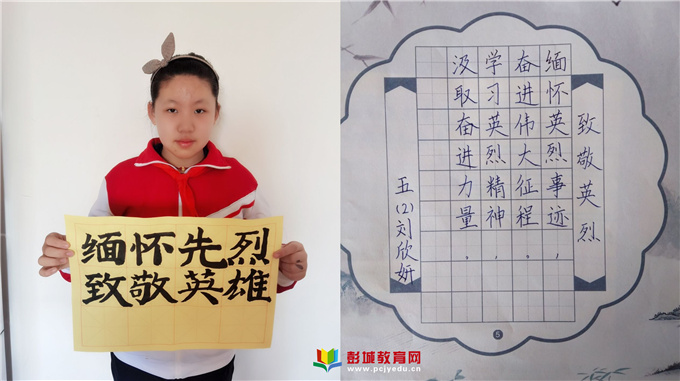 缅怀先烈
致敬英雄
致敬英烈
缅怀英烈事迹，
奋进伟大征程。
学习英烈精神，
汲取奋进力量，
五(2)刘欣妍
⑤
彭城教育网
www.pcjyedu.cn